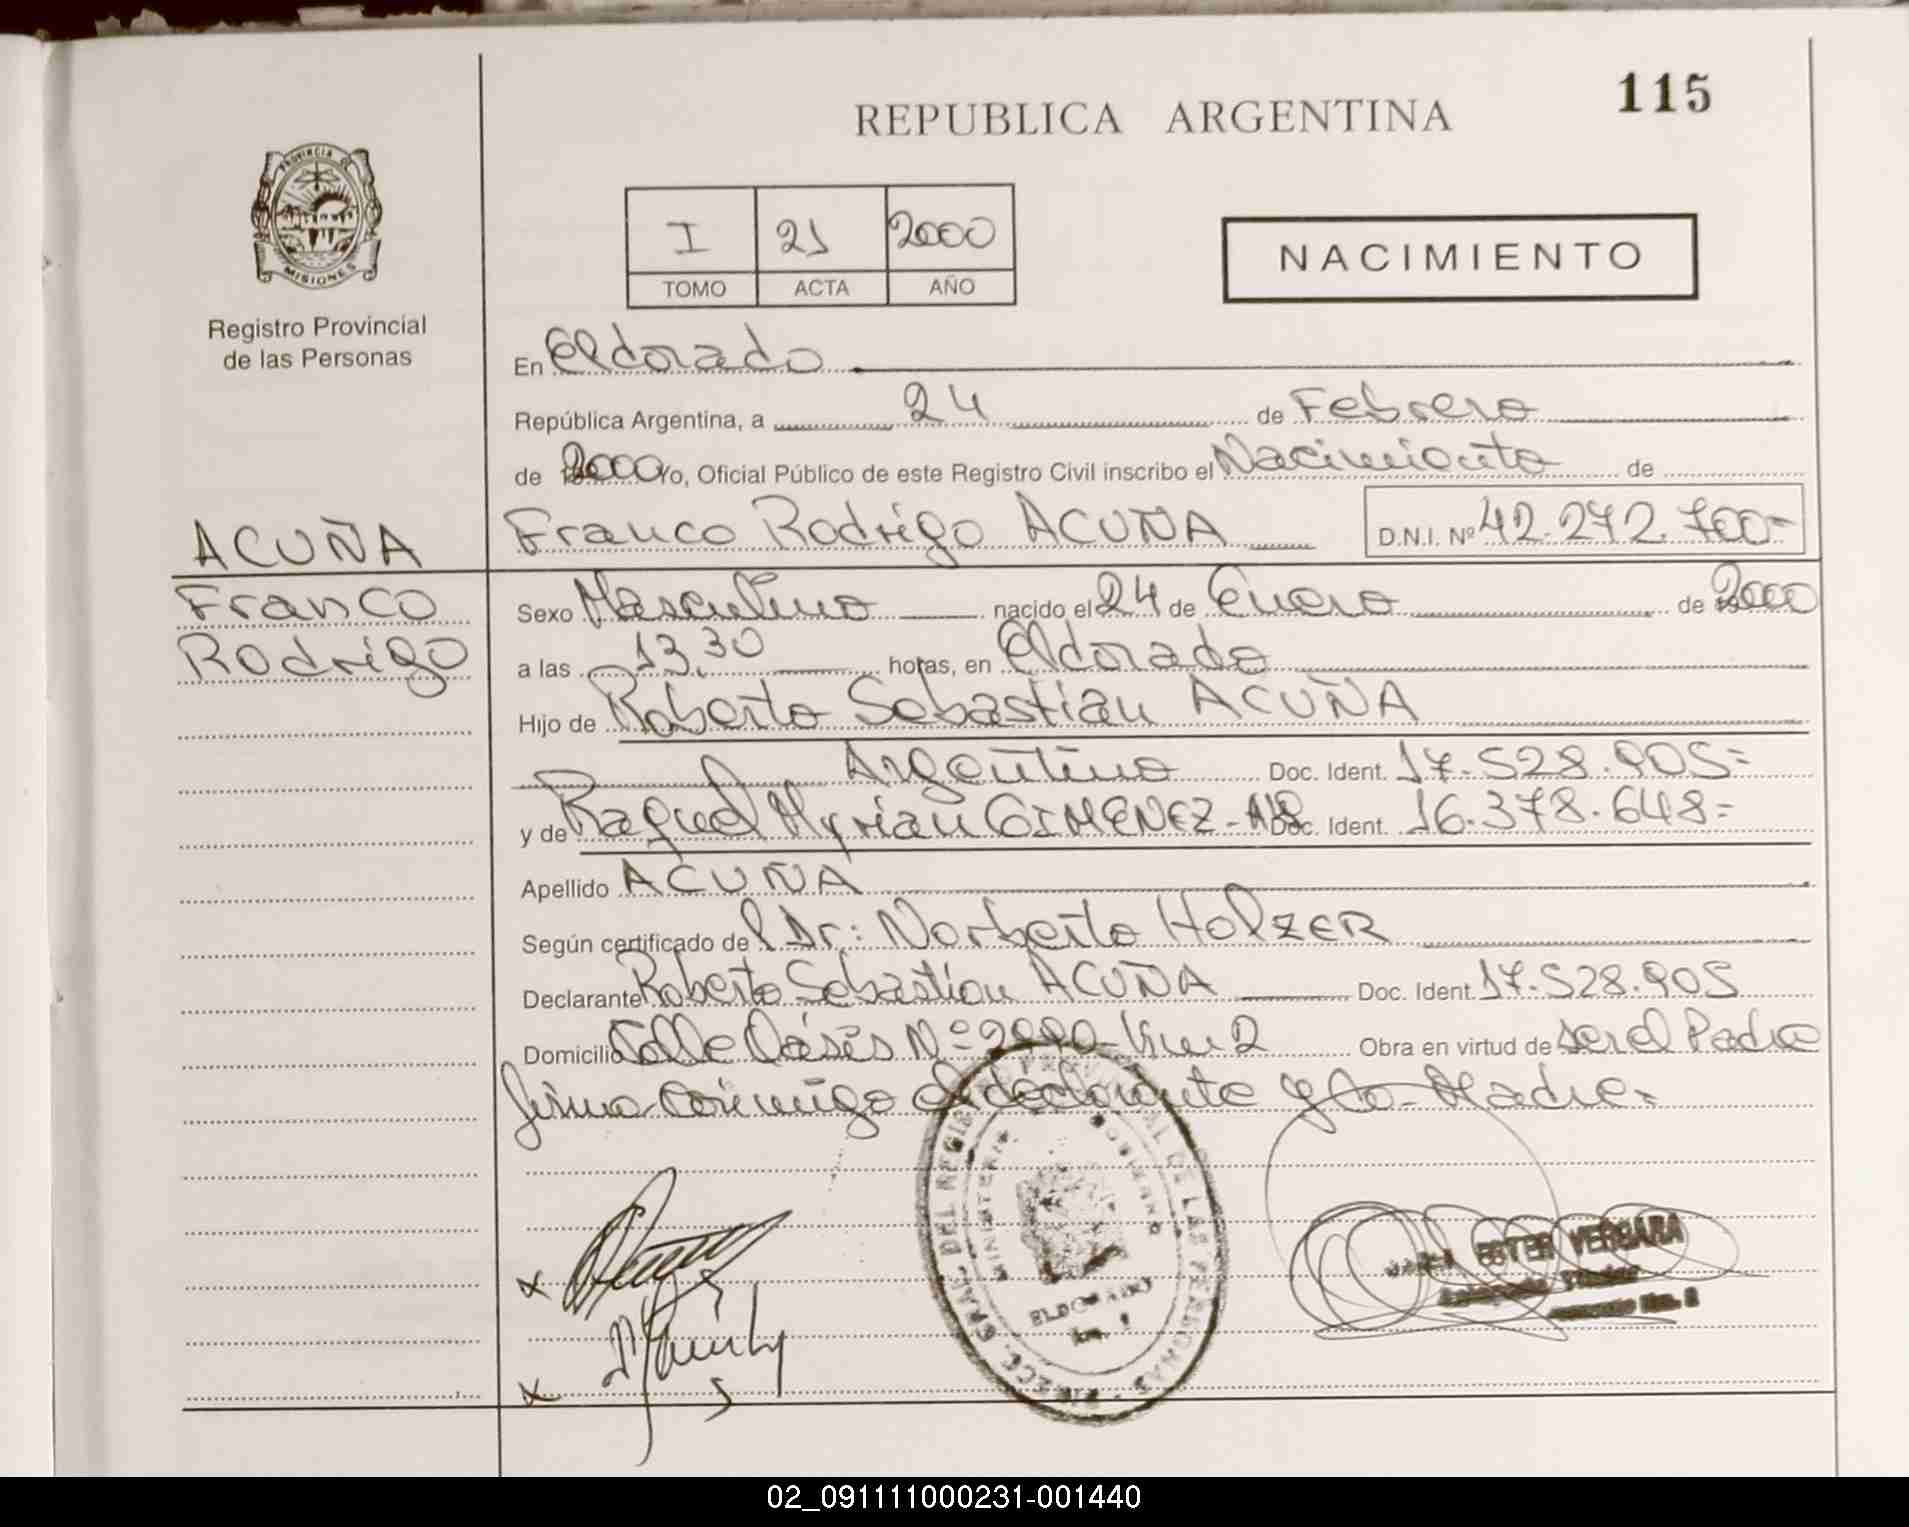 115
REPUBLICA ARGENTINA
PROVINCIA DE
MISIONES
Registro Provincial
de las Personas
I 21 2000
TOMO ACTA AÑO
NACIMIENTO
En Eldorado
República Argentina, a 24 de Febrero
de 2000 Yo, Oficial Público de este Registro Civil inscribo el Nacimiento de
ACUÑA
Franco
Rodrigo
Franco Rodrigo ACUÑA D.N.I. Nº 42.272.700-
Sexo Masculino nacido el 24 de Enero de 2000
a las 13,30 horas, en Eldorado
Hijo de Roberto Sebastian ACUÑA
Argentino Doc. Ident. 17.528.905=
y de Raquel Myrian GIMENEZ - Doc. Ident. 16.378.648=
Apellido ACUÑA
Según certificado del Dr: Norberto HOLZER
Declarante Roberto Sebastian ACUÑA Doc. Ident. 17.528.905
Domicilio Calle Oásis Nº Km 2 Obra en virtud de ser el Padre
firma conmigo el declarante y la Madre.
DIRECC. GRAL. DEL REGISTRO PROVINCIAL DE LAS PERSONAS
MINISTERIO GOBIERNO
ELDORADO
ESTER VERGARA
02_091111000231-001440